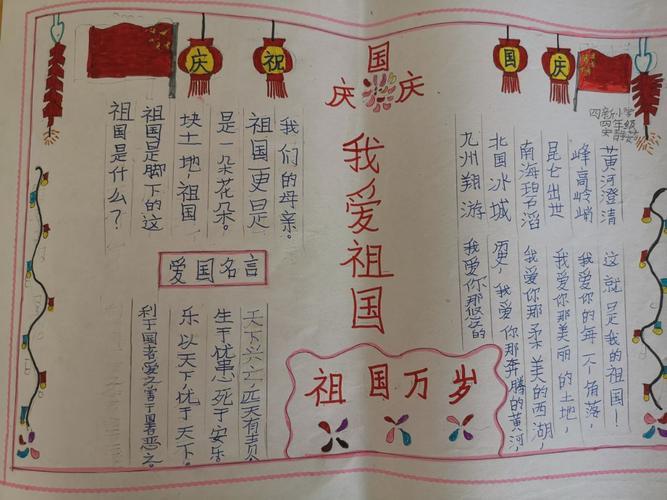 庆祝
国庆
国
庆庆
我爱祖国
四年级
祖国是什么？
祖国是脚下的这
块土地，祖国
是一朵花朵。
祖国更是
我们的母亲。
爱国名言
利于国者爱之害于国者恶之。
乐以天下，忧于天下。
生于忧患死于安乐
天下兴亡，匹夫有责
九州翔游
北国冰城
南海碧滔
昆仑出世
峰高岭峭
黄河澄清
我爱你那悠久的
历史，我爱你那奔腾的黄河，
我爱你那柔美的西湖，
我爱你那美丽的土地，
我爱你的每一个角落，
这就是我的祖国！
祖国万岁